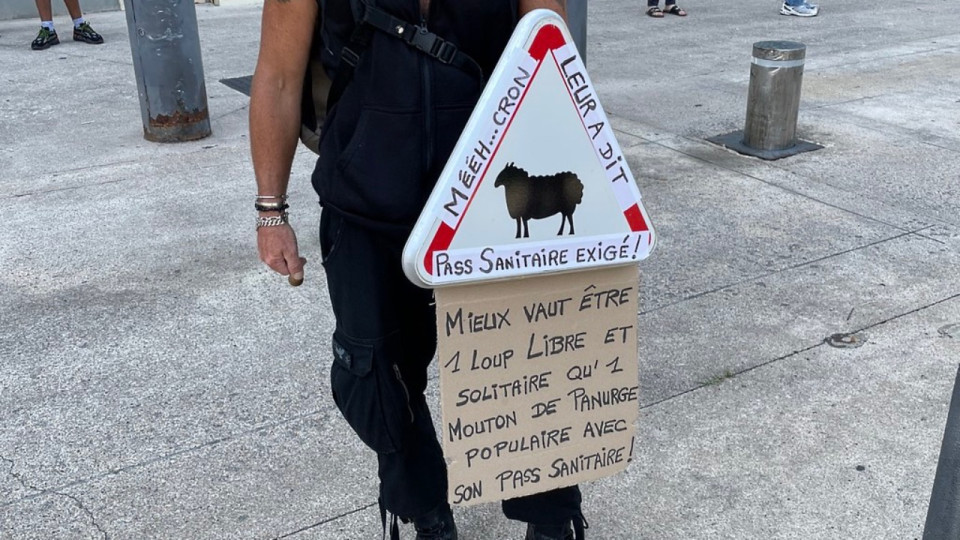 MÉÉH...CRON
LEUR A DIT
PASS SANITAIRE EXIGÉ!
MIEUX VAUT ÊTRE
1 LOUP LIBRE ET
SOLITAIRE QU'1
MOUTON DE PANURGE
POPULAIRE AVEC
SON PASS SANITAIRE!